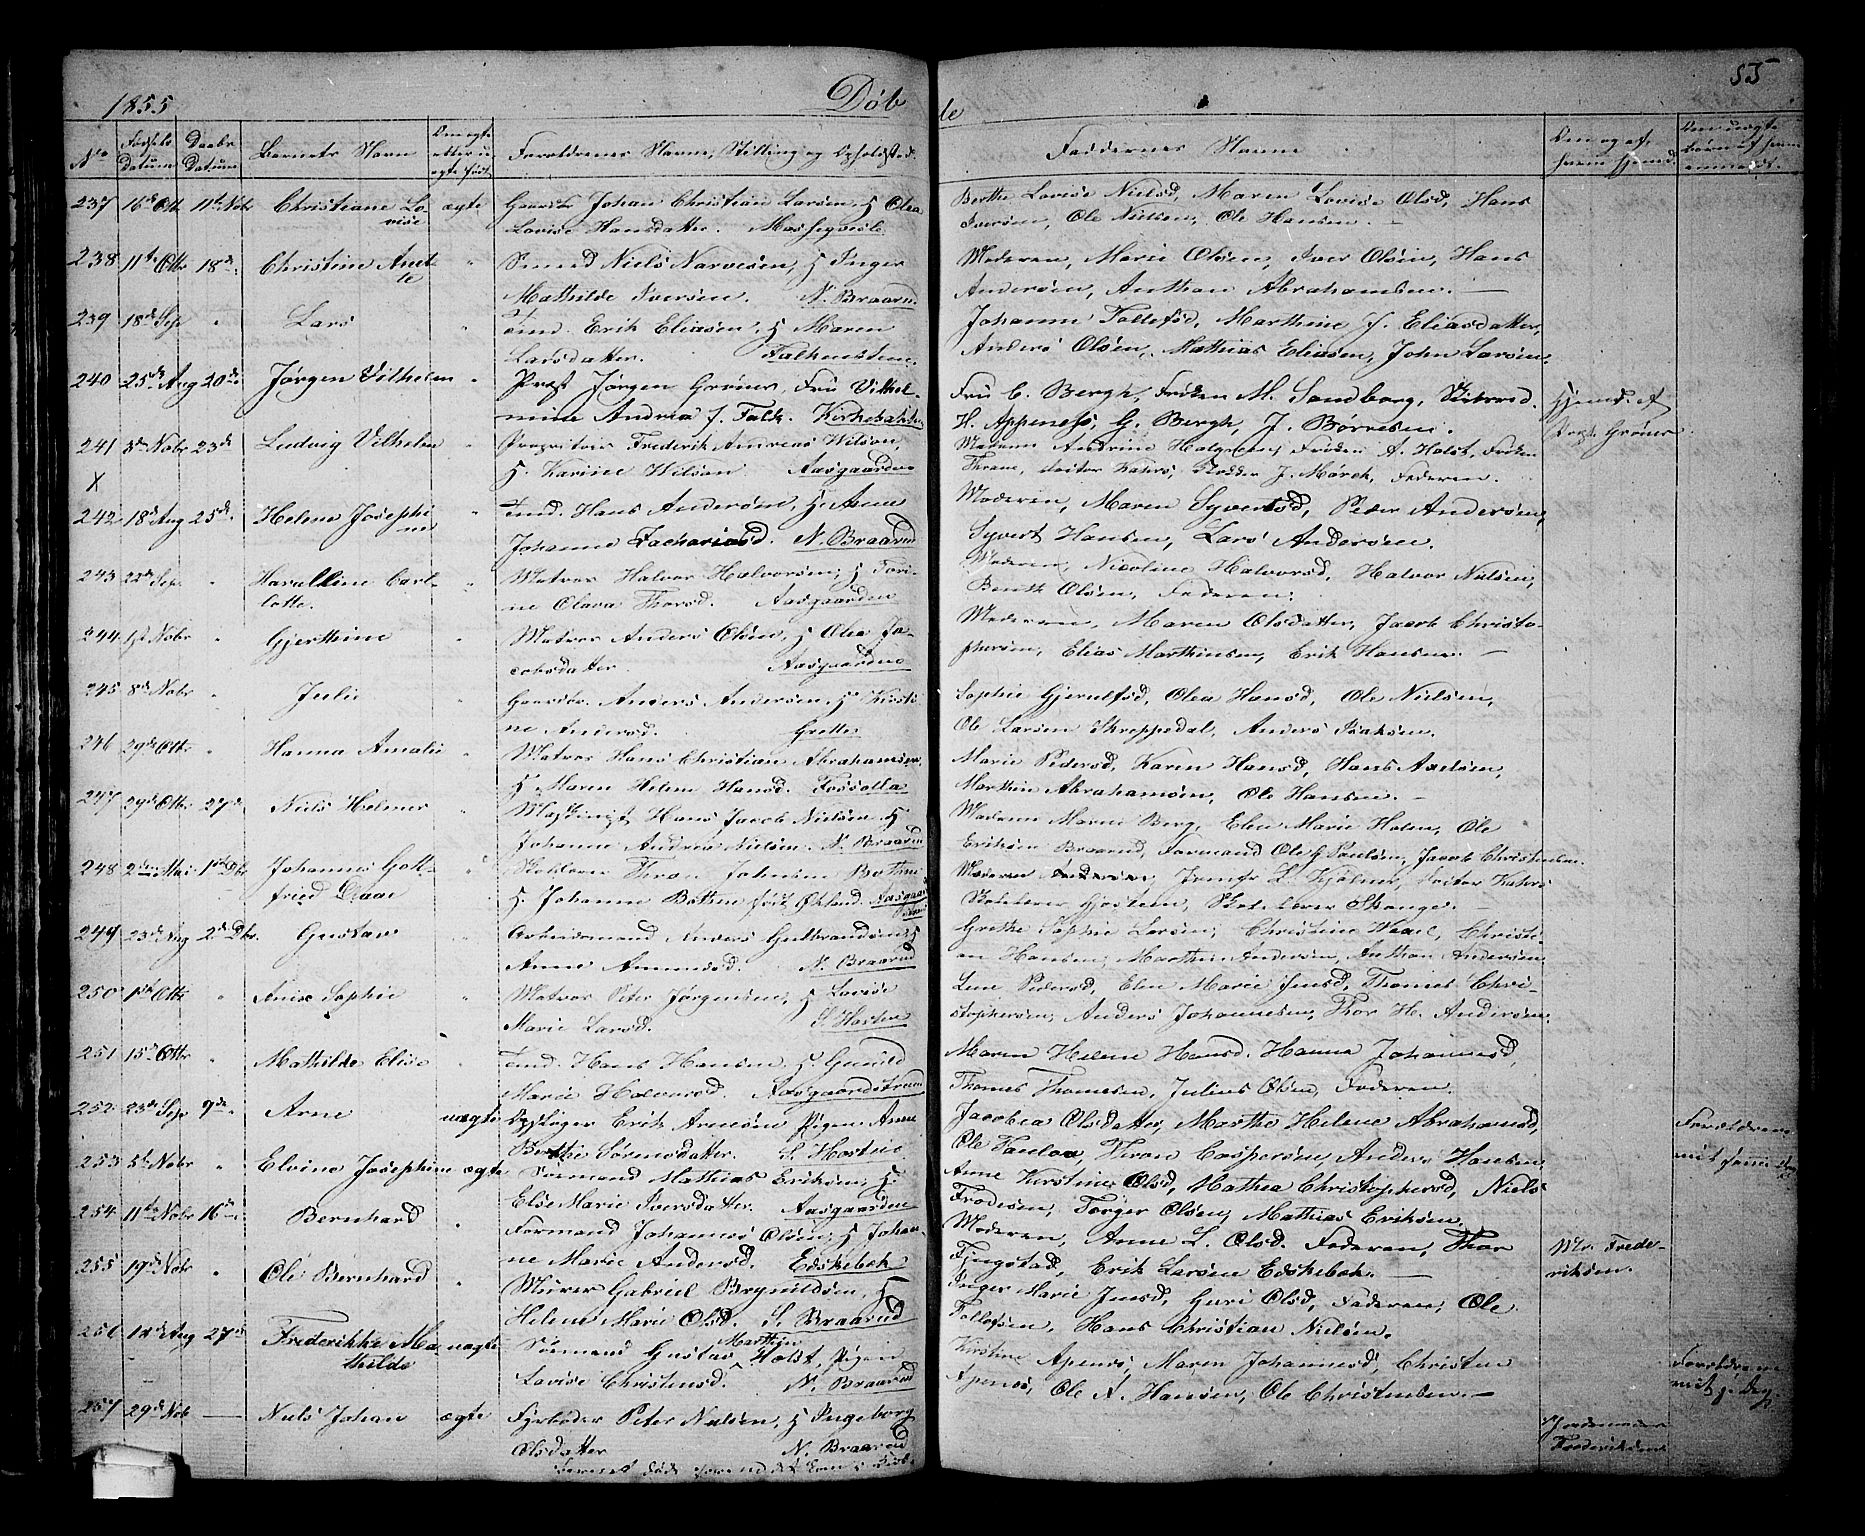 1855
Døb
te
55
No
Fødsels Datum
Daabs Datum
Barnets Navn
Om ægte eller u-ægte født
Forældrenes Navne, Stilling og Opholdsted
Faddernes Navne
237 16de Oct 11te Nobr Christiane Lovise ægte Gaardbr Johan Christian Larsen, H Olea
Lovise Hansdatter. Mossegveile
Berthe Lovise Nielsd, Maren Lovise Olsd, Hans
Iversen, Ole Nielsen, Ole Hansen
238 11te Octbr 18de Christine Anette " Smed Niels Narvesen, H Inger
Mathilde Iversen. N. Braarud
Moderen, Marie Olsen, Iver Olsen, Hans
Andersen, Anthon Abrahamsen.
239 18de Sep " Lars " Tmd. Erik Eliasen, H Maren
Larsdatter. Falkensteen
Johanne Tollefsd, Marthine J. Eliasdatter,
Anders Olsen, Mathias Eliasen, John Larsen
240 25de Aug 20de Jørgen Vilhelm " Præst Jørgen Grøner, Fru Vilhel-
mine Andrea f. Falk. Kirkebakken
Fru C. Bergh, Frøken M. Sandberg,
H. Appenæs, G. Bergh, J. Børresen.
Hjemd. af
Præst Grøner
241 8de Nobr 23de Ludvig Vilhelm " Proprietær Frederik Andreas Wilson,
H. Karine Wilson Aasgaarden
X
Madam Andrine Holgren, Frøken A. Holst, Frøken
Thrane, Doctor Kahrs, J. Mørch, Faderen.
242 18de Aug 25de Helene Josephine " Tmd. Hans Andersen, H. Anne
Johanne Zachariasd. N. Braarud
Moderen, Maren Syvertsd, Peder Andersen,
Syvert Hansen, Lars Andersen.
243 22de Sep " Haraldine Carlotte. " Matros Halvor Halvorsen, H Tori-
ne Olava Thorsd. Aasgaarden
Moderen, Nicoline Halvorsd, Halvor Nielsen,
Bernth Olsen, Faderen.
244 1ste Nobr " Gjerthine " Matros Anders Olsen, H Olea Ja-
cobsdatter. Aasgaarden
Moderen, Maren Olsdatter, Jacob Christo-
phersen, Elias Marthinsen, Erik Hansen
245 8de Nobr " Julie " Gaardbr. Anders Andersen, H Kirsti-
ne Andersd. Grette
Sophie Gjerulfsd, Olea Hansd, Ole Nielsen,
Ole Larsen Skreppedal, Anders Isaksen.
246 29de Octbr " Hanna Amalie " Matros Hans Christian Abrahamsen,
H. Maren Helene Hansd. Fossolla
Marie Pedersd, Karen Hansd, Hans Axelsen,
Marthin Abrahamsen, Ole Hansen.
247 29de Octbr 27de Niels Helmer " Maskinist Hans Jacob Nielsen H
Johanne Andrea Nielsen. N. Braarud
Madam Maren Berg, Elen Marie Holm, Ole
Eriksen Braarud, Formand Ole G Paulsen, Jacob Christensen.
248 2den Mai 1ste Dbr Johannes Gottfried Daae " Skolelærer Thron Johnsen Bothne
H. Johanne Bothne født Økland. Aasgaard
Moderen, Jomfr L. Kjølner, Doctor Kahrs
Skolelærer Hjostein, Skolelærer Skange.
249 23de Aug 2de Dbr. Gustav Arbeidsmand Anders Gulbrandsen H
Anne Ammunsd. N. Braarud
Grethe Sophie Larsen, Christine Waael, Christi-
an Hansen, Marthin Andersen, Anthon Andersen
250 1ste Octbr " Anine Sophie " Matros Peter Jørgensen, H Lovise
Marie Larsd. S. Horten
Line Pedersd, Elen Marie Jensd, Thomas Chri-
stophersen, Anders Johannesen, Thor H. Andersen.
251 15de Octbr " Mathilde Elise " Tmd. Hans Hansen H. Gunild
Marie Halvorsd. Aasgaardstrand
Maren Helene Hansd. Hanna Johannesd,
Thomas Thomesen, Julius Olsen, Faderen.
252 23de Sep 9de Arne uægte Opsynger Erik Arnesen Pigen Anne
Berthe Sørensdatter. S. Horten
Jacobea Olsdatter, Marthe Helene Abrahamsd,
Ole Paulsen, Thron Caspersen, Anders Hansen
Forældrenes
253 5te Nobr " Elvine Josephine ægte Sømand Mathias Eriksen, H.
Else Marie Iversdatter. Aasgaarden
Anne Kirstine Olsd, Mathea Christophersd, Niels
Frodesen, Torger Olsen, Mathias Eriksen.
254 11te Nobr 16de Bernhard " Formand Johannes Olsen, H Johan-
ne Marie Andersd. Edskebek
Moderen, Anne L. Olsd. Faderen, Thor
Fyngstad, Erik Larsen Edskebek.
Mr. Frede-
riksen.
255 19de Nobr " Ole Bernhard " Murer Gabriel Brynildsen, H
Helene Marie Olsd. S. Braarud
Inger Marie Jensd, Guri Olsd, Faderen, Ole
Tollefsen, Hans Christian Nielsen.
256 14de Aug 27de Frederikke Mathilde uægte Sømand Gustav Mathias Holst, Pigen
Lovise Christensd. N. Braarud
Kirstine Apenæs, Maren Johannesd, Christen
Apenæs, Ole A. Hansen, Ole Christensen.
Forældrene
257 29de Nob — Niels Johan ægte Fyrbøder Peter Nielsen, H Ingeborg
Olsdatter N. Braarud
Jordemoder
Frederiksen